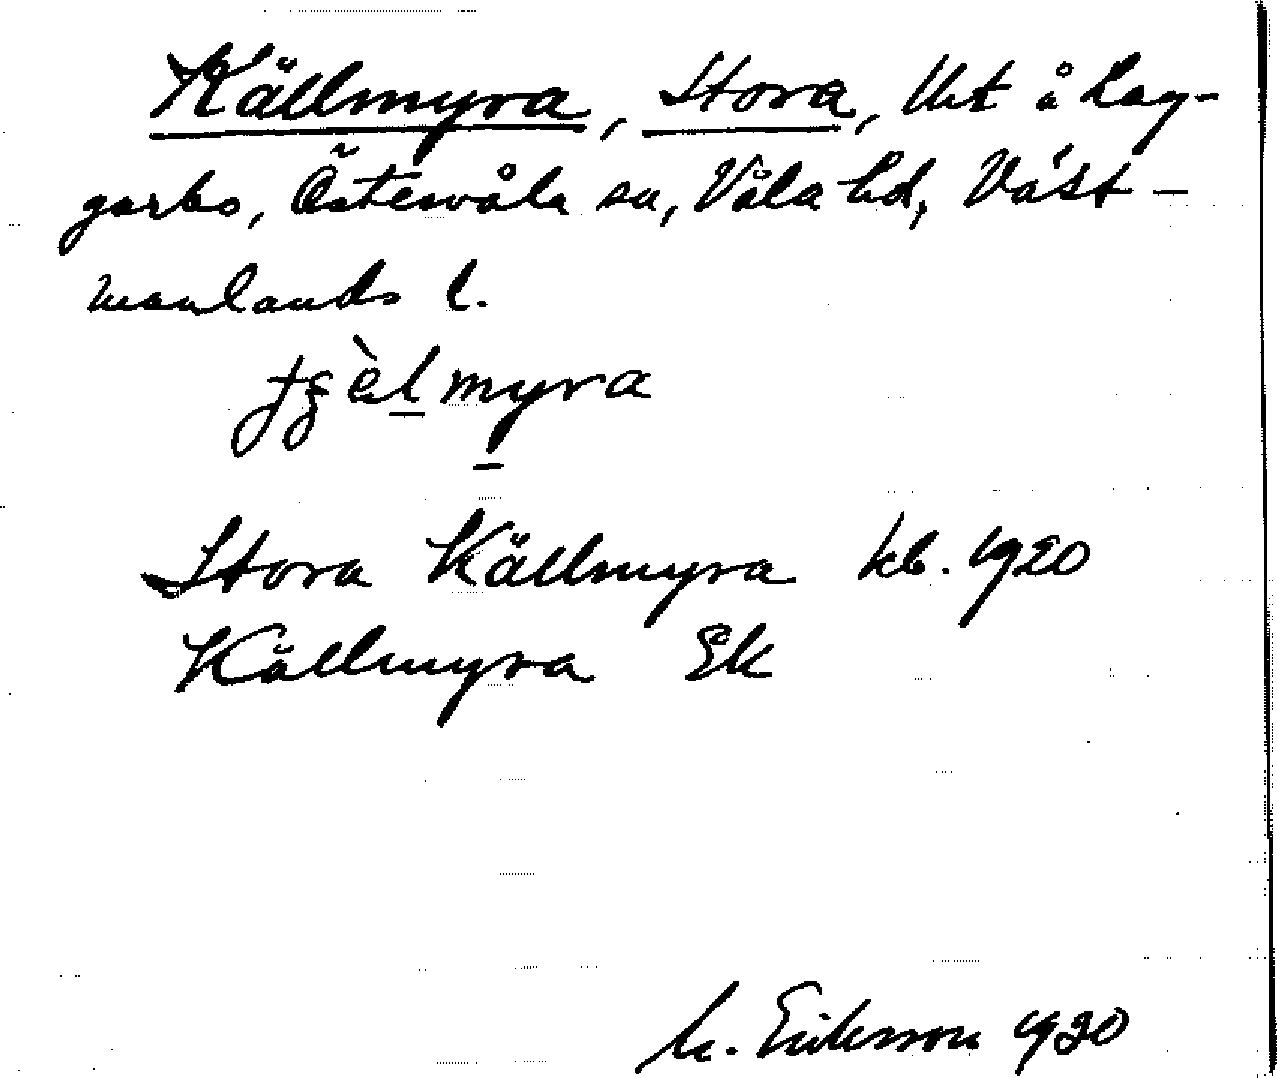 Källmyra, Stora, Utt å Lag-
garbo, Östervåla sn, Våla hd, Väst-
manlands l.
Stora Källmyra kb. 1920
Källmyra Ek
M. Eriksson 1930